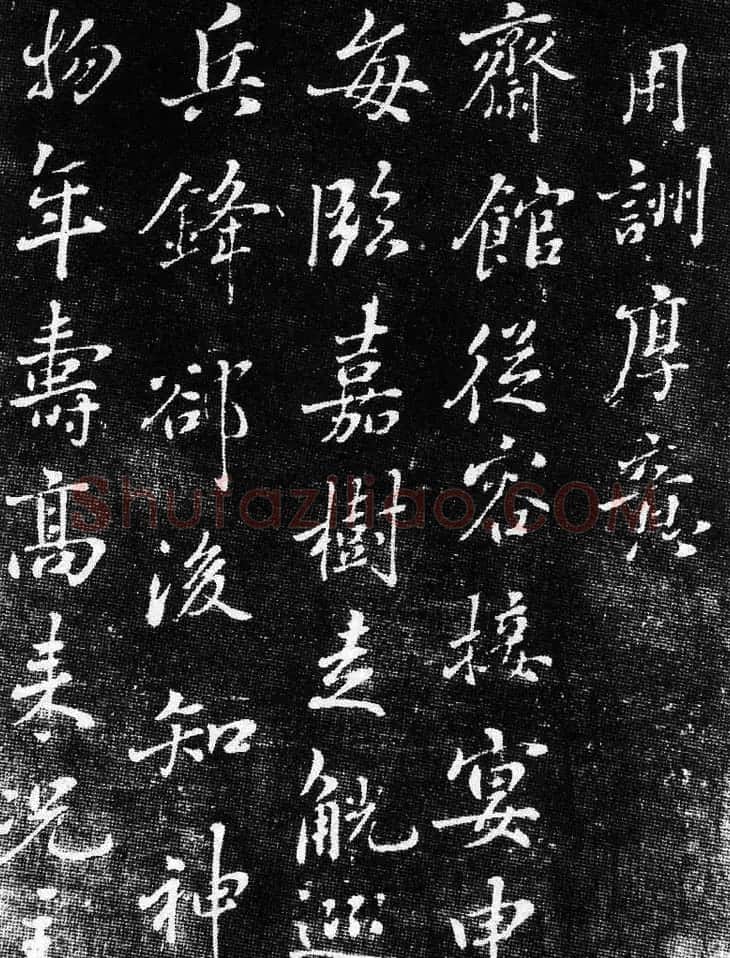 用詶厚意
齋館從容接宴申
每臨嘉樹走觥巡
兵鋒郤後知神
物年壽高来況主
Shufaziliao.COM